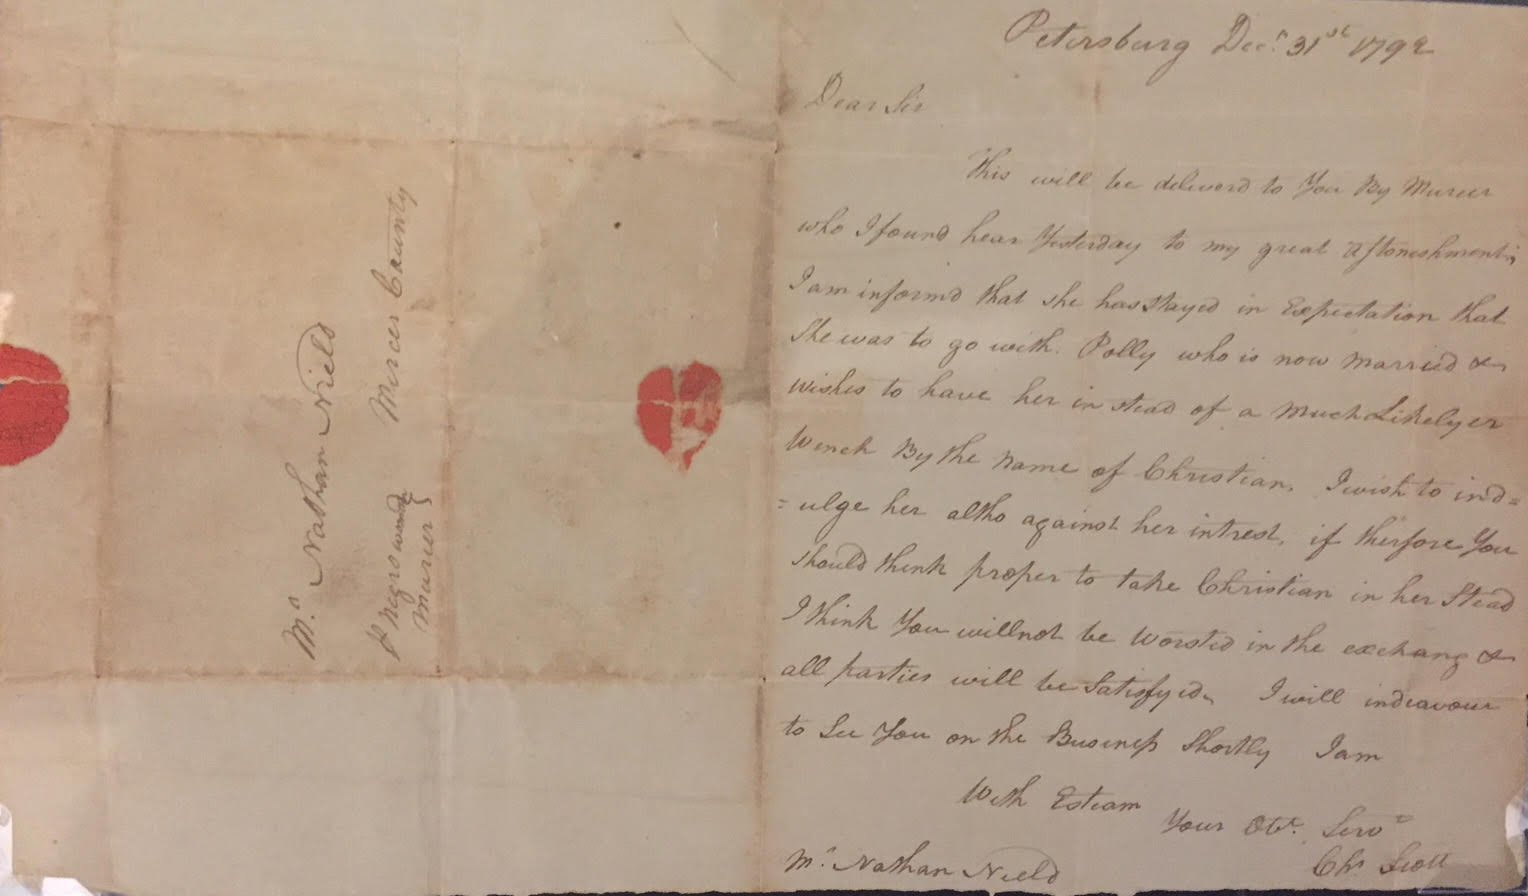 Petersburg Decr. 31st 1792
Dear Sir
This will be deliverd to You By Murier
who I found hear Yesterday to my great astonishment;
I am informd that she has stayed in Expectation that
She was to go with Polly who is now married &
wishes to have her in stead of a much Likelyer
Wench By the Name of Christian. I wish to ind=
=ulge her altho against her intrest, if therfore You
should think proper to take Christian in her Stead
I think You will not be worsted in the exchang &
all parties will be Satisfyed. I will indeavour
to See You on the Business Shortly I am
With Esteam
Your Obt. Servt
Chs Scott
Mr. Nathan Nield
Mr. Nathan Nield
Mercer County
Pr Negro
Murier